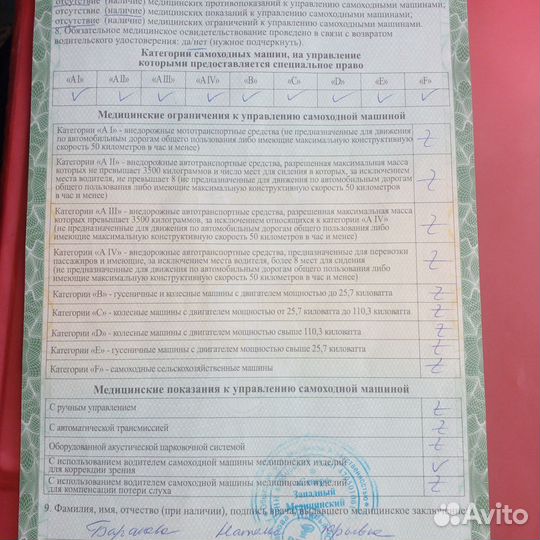 отсутствие (наличие) медицинских противопоказаний к управлению самоходными машинами;
отсутствие (наличие) медицинских показаний к управлению самоходными машинами;
отсутствие (наличие) медицинских ограничений к управлению самоходными машинами.
8. Обязательное медицинское освидетельствование проведено в связи с возвратом
водительского удостоверения: да/нет (нужное подчеркнуть).
Категории самоходных машин, на управление
которыми предоставляется специальное право
«AI» «A II» «A III» «A IV» «B» «C» «D» «E» «F»
✓ ✓ ✓ ✓ ✓ ✓ ✓ ✓ ✓
Медицинские ограничения к управлению самоходной машиной
Категории «A I» - внедорожные мототранспортные средства (не предназначенные для движения
по автомобильным дорогам общего пользования либо имеющие максимальную конструктивную
скорость 50 километров в час и менее) Z
Категории «A II» - внедорожные автотранспортные средства, разрешенная максимальная масса
которых не превышает 3500 килограммов и число мест для сидения в которых, за исключением
места водителя, не превышает 8 (не предназначенные для движения по автомобильным дорогам
общего пользования либо имеющие максимальную конструктивную скорость 50 километров
в час и менее) Z
Категории «A III» - внедорожные автотранспортные средства, разрешенная максимальная масса
которых превышает 3500 килограммов, за исключением относящихся к категории «A IV»
(не предназначенные для движения по автомобильным дорогам общего пользования либо
имеющие максимальную конструктивную скорость 50 километров в час и менее) Z
Категории «A IV» - внедорожные автотранспортные средства, предназначенные для перевозки
пассажиров и имеющие, за исключением места водителя, более 8 мест для сидения
(не предназначенные для движения по автомобильным дорогам общего пользования либо
имеющие максимальную конструктивную скорость 50 километров в час и менее) Z
Категории «B» - гусеничные и колесные машины с двигателем мощностью до 25,7 киловатта Z
Категории «C» - колесные машины с двигателем мощностью от 25,7 киловатта до 110,3 киловатта Z
Категории «D» - колесные машины с двигателем мощностью свыше 110,3 киловатта Z
Категории «E» - гусеничные машины с двигателем мощностью свыше 25,7 киловатта Z
Категории «F» - самоходные сельскохозяйственные машины Z
Медицинские показания к управлению самоходной машиной
С ручным управлением Z
С автоматической трансмиссией Z
Оборудованной акустической парковочной системой Z
С использованием водителем самоходной машины медицинских изделий
для коррекции зрения ✓
С использованием водителем самоходной машины медицинских изделий
для компенсации потери слуха Z
Западный
Медицинский
9. Фамилия, имя, отчество (при наличии), подпись врача, выдавшего медицинское заключение:
Наталья Юрьевна
Avito